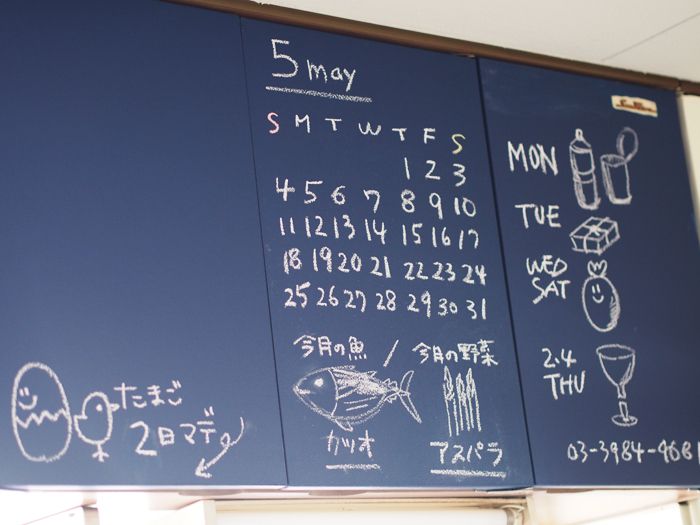 たまご
2日マデ
5 may
S M T W T F S
1 2 3
4 5 6 7 8 9 10
11 12 13 14 15 16 17
18 19 20 21 22 23 24
25 26 27 28 29 30 31
今月の魚 / 今月の野菜
カツオ
アスパラ
MON
TUE
WED
SAT
2.4
THU